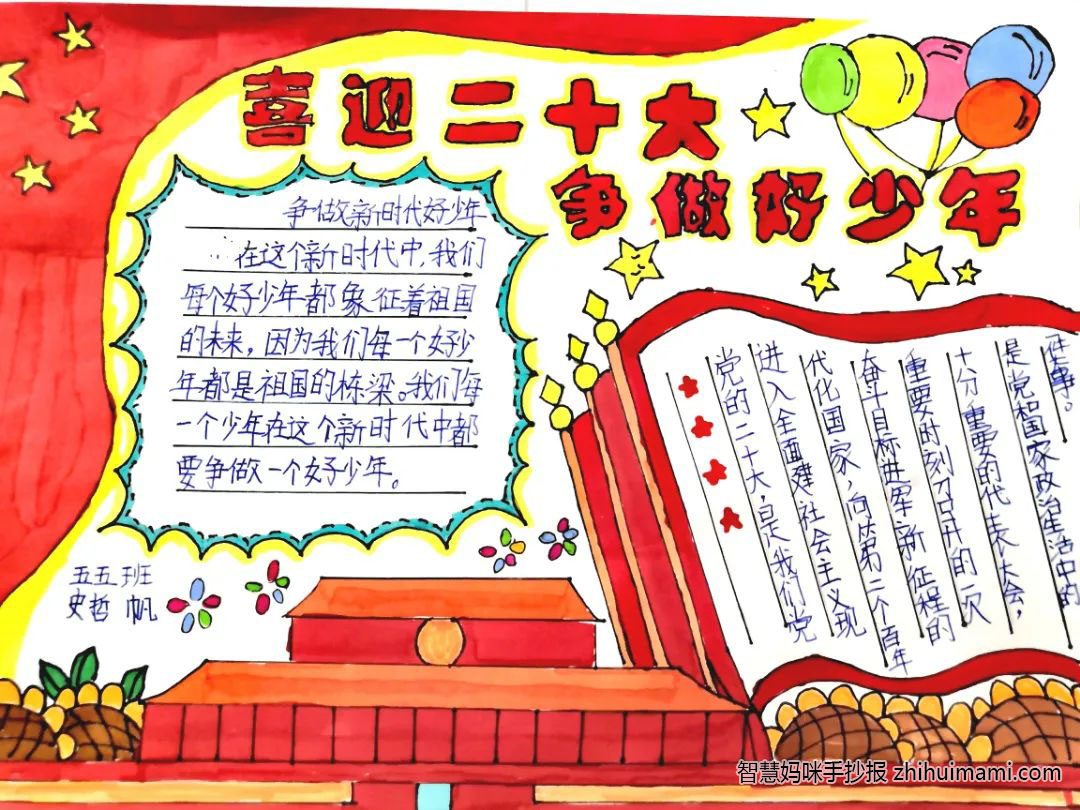 喜迎二十大
争做好少年
争做新时代好少年
在这个新时代中,我们
每个好少年都象征着祖国
的未来,因为我们每一个好少
年都是祖国的栋梁。我们每
一个少年在这个新时代中都
要争做一个好少年。
党的二十大,是我们党
进入全面建社会主义现
代化国家,向第二个百年
奋斗目标进军新征程的
重要时刻召开的一次
十分重要的代表大会,
是党和国家政治生活中的
件事。
五五班
史哲帆
智慧妈咪手抄报 zhihuimami.com